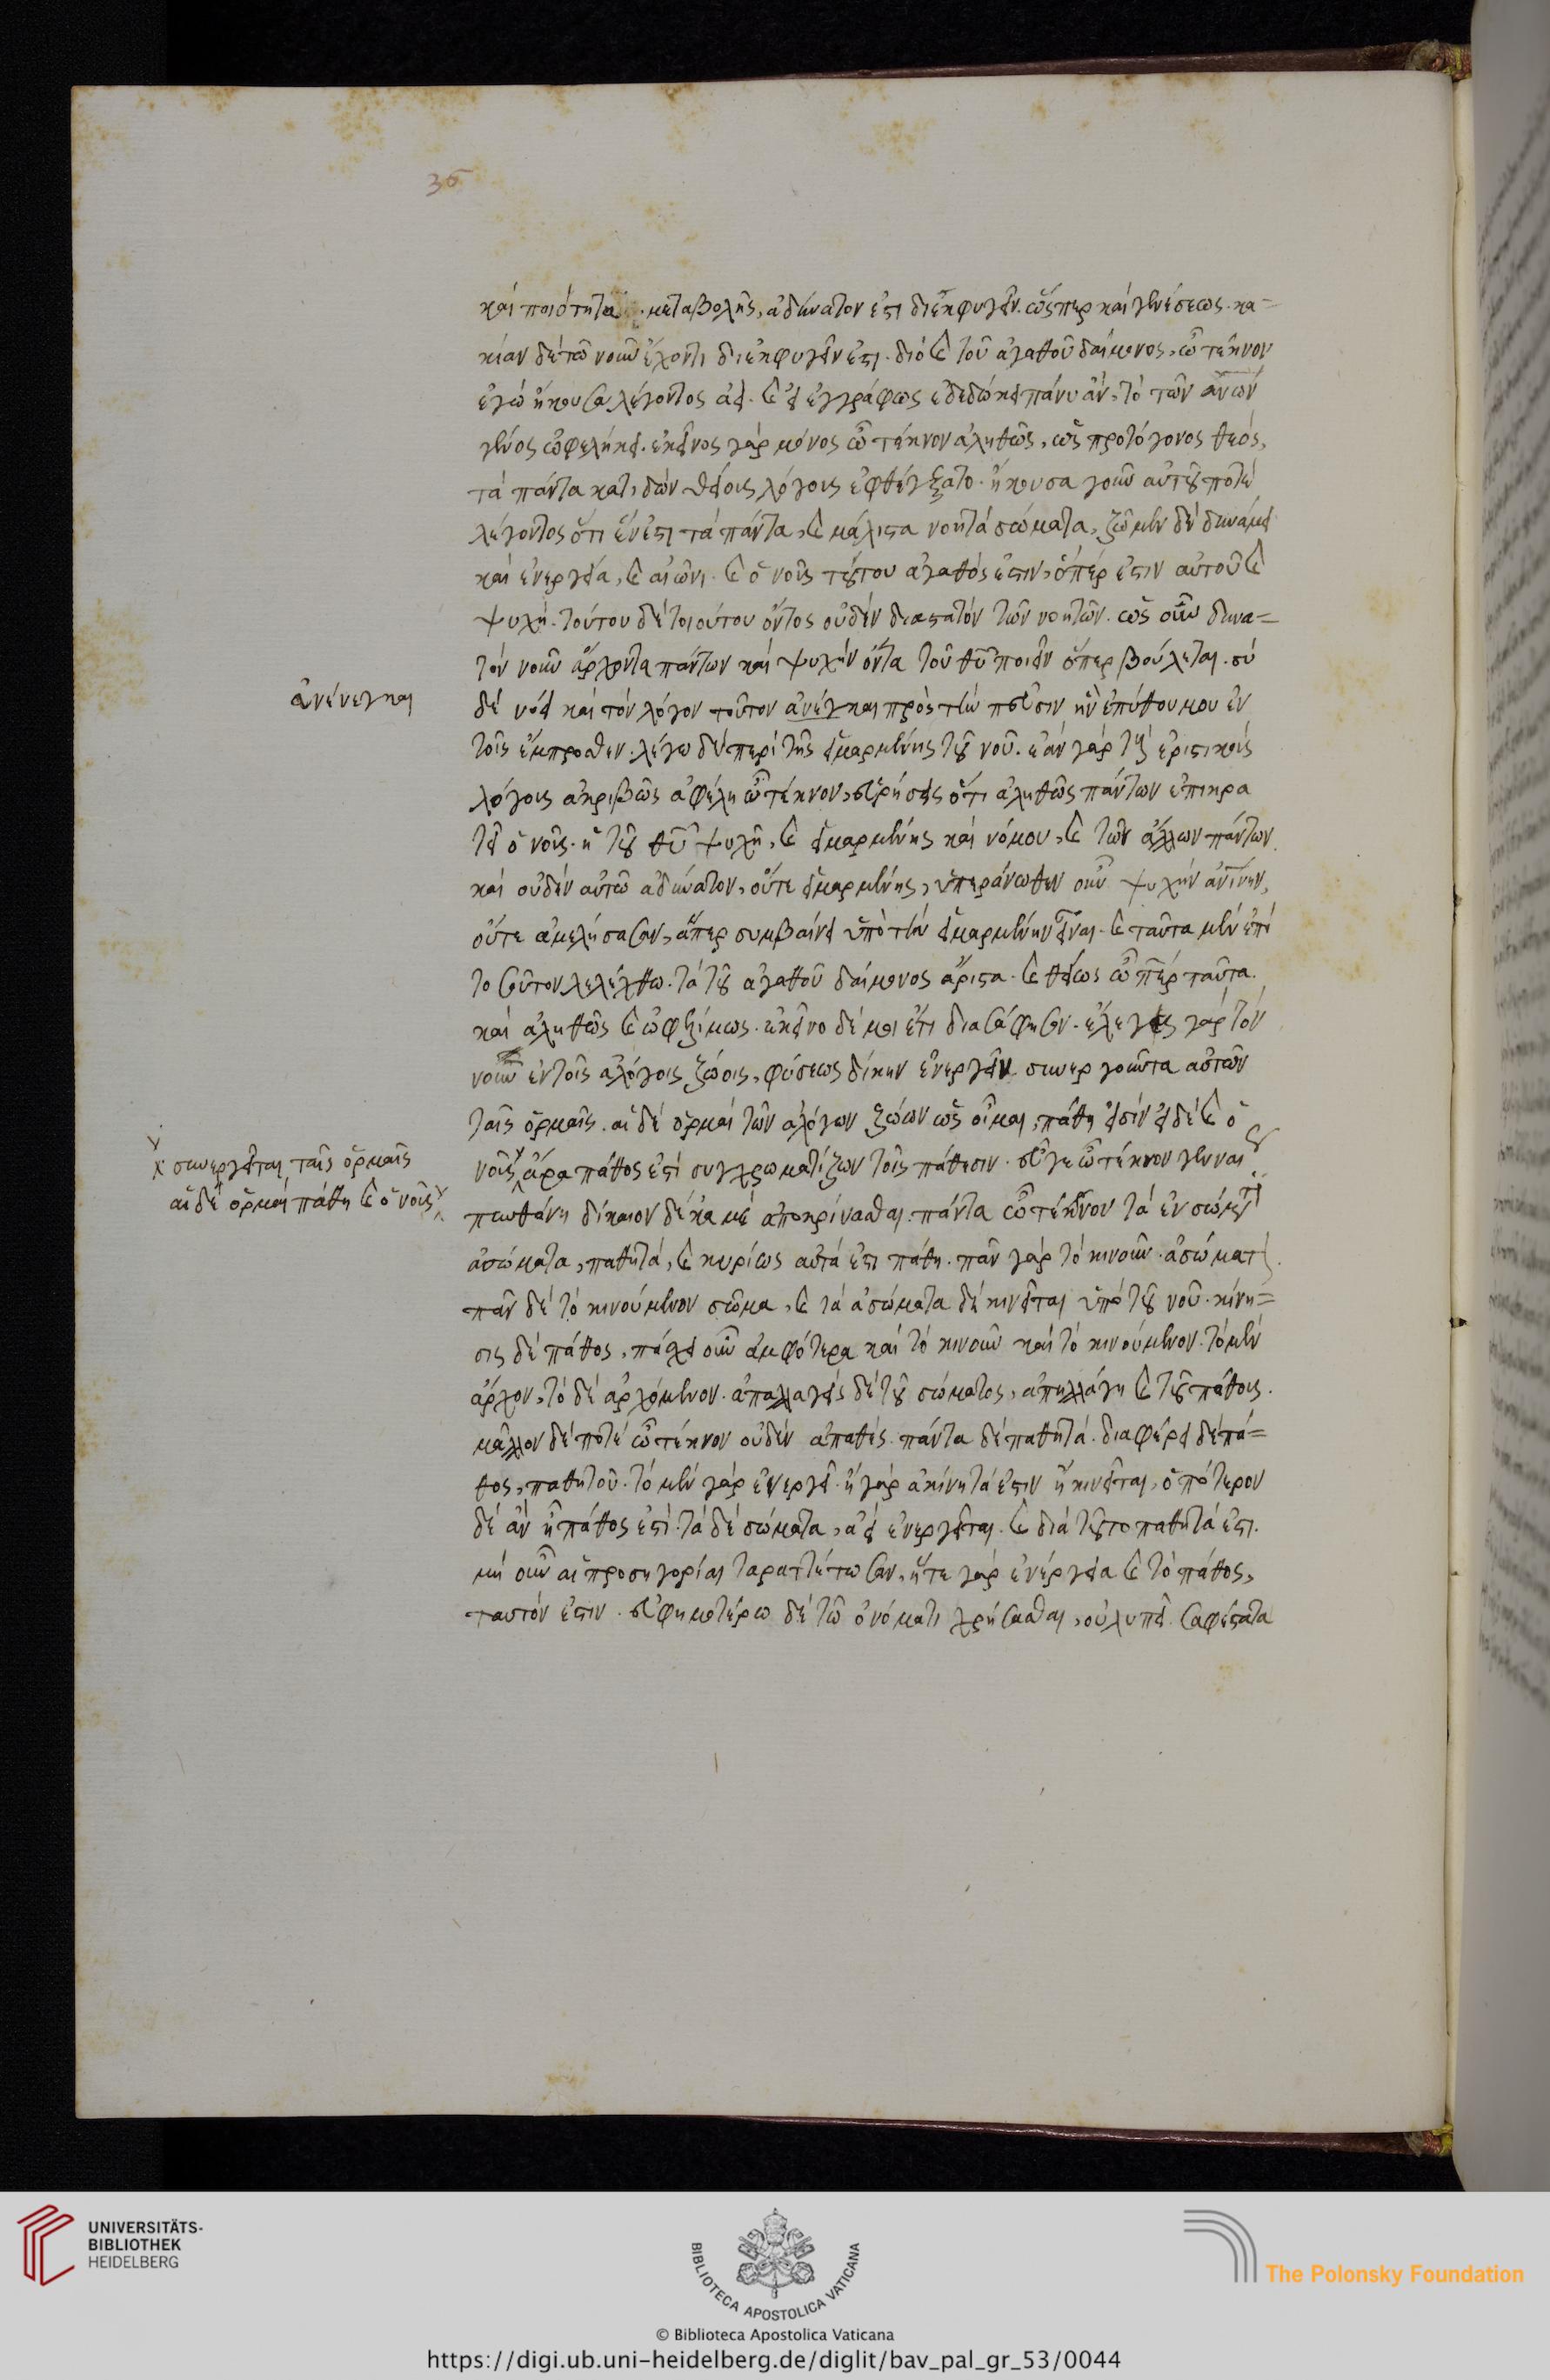 36
καὶ ποιότητα μεταβολῆς, ἀδύνατόν ἐστι διεκφυγεῖν. ὥσπερ καὶ γενέσεως. κα=
κίαν δὲ τῷ νοῦν ἔχοντι διεκφυγεῖν ἐστι. διὸ καὶ τοῦ ἀγαθοῦ δαίμονος, ὦ τέκνον
ἐγὼ ἤκουσα λέγοντος ἀεί. καὶ εἰ ἐγγράφως ἐδεδώκει πάνυ ἂν, τὸ τῶν ἀνων
γένος ὠφελήκει. ἐκεῖνος γὰρ μόνος ὦ τέκνον ἀληθῶς, ὡς πρωτόγονος θεός,
τὰ πάντα κατιδὼν θείους λόγους ἐφθέγξατο. ἤκουσα γοῦν αὐτοῦ ποτὲ
λέγοντος ὅτι ἕν ἐστι τὰ πάντα, καὶ μάλιστα νοητὰ σώματα, ζῶμεν δὲ δυνάμει
καὶ ἐνεργεία, καὶ αἰῶνι. καὶ ὁ νοῦς τούτου ἀγαθός ἐστιν, ὅπερ ἐστιν αὐτοῦ καὶ
ψυχή. τούτου δὲ τοιούτου ὄντος οὐδὲν διαστατὸν τῶν νοητῶν. ὡς οὖν δυνα=
τὸν νοῦν ἄρχοντα πάντων καὶ ψυχὴν ὄντα τοῦ θυ ποιεῖν ὅπερ βούλεται. σὺ
ἀνένεγκαι
δὲ νόει καὶ τὸν λόγον τοῦτον ἀνέγκαι πρὸς τὴν πεῦσιν ἣν ἐπύθου μου ἐν
τοῖς ἔμπροσθεν. λέγω δὲ περὶ τῆς εἱμαρμένης τοῦ νοῦ. ἐὰν γὰρ τοὺς ἐριστικοὺς
λόγους ἀκριβῶς ἀφέλη ὦ τέκνον, εὑρήσεις ὅτι ἀληθῶς πάντων ἐπικρα
τεῖ ὁ νοῦς. ἡ τοῦ θυ ψυχὴ, καὶ εἱμαρμένης καὶ νόμου, καὶ τῶν ἄλλων πάντων.
καὶ οὐδὲν αὐτῷ ἀδύνατον, οὔτε εἱμαρμένης, ὑπεράνωθεν οὖν ψυχὴν ἀνίνην,
οὔτε ἀμελήσασαν, ἅπερ συμβαίνει ὑπὸ τὴν εἱμαρμένην εἶναι. καὶ ταῦτα μὲν ἐπὶ
τοσοῦτον λελέχθω. τὰ τοῦ ἀγαθοῦ δαίμονος ἄριστα. καὶ θείως ὦ περ ταῦτα.
καὶ ἀληθῶς καὶ ὠφελίμως. ἐκεῖνο δέ μοι ἔτι διασάφησον. ἔλεγες γὰρ τὸν
νοῦν ἐν τοῖς ἀλόγοις ζώοις, φύσεως δίκην ἐνεργεῖν συνεργοῦντα αὐτῶν
ταῖς ὁρμαῖς. αἱ δὲ ὁρμαὶ τῶν ἀλόγων ζώων ὡς οἶμαι, πάθη εἰσίν εἰ δὲ καὶ ὁ
× συνεργεῖται ταῖς ὁρμαῖς
αἱ δὲ ὁρμαὶ πάθη καὶ ὁ νοῦς ×
νοῦς ἄρα πάθος ἐστὶ συγχρωματίζων τοῖς πάθεσιν. εὖγε ὦ τέκνον γενναι
πυνθάνη δίκαιον δὲ κα μὲ ἀποκρίνασθαι. πάντα ὦ τέκνον τὰ ἐν σώματι
ἀσώματα, παθητὰ, καὶ κυρίως αὐτά ἐστι πάθη. πᾶν γὰρ τὸ κινοῦν. ἀσώματ
πᾶν δὲ τὸ κινούμενον σῶμα, καὶ τὰ ἀσώματα δὲ κινεῖται ὑπὸ τοῦ νοῦ. κίνη=
σις δὲ πάθος, πάσχει οὖν ἀμφότερα καὶ τὸ κινοῦν καὶ τὸ κινούμενον. τὸ μὲν
ἄρχον, τὸ δὲ ἀρχόμενον. ἀπαλλαγεὶς δὲ τοῦ σώματος, ἀπηλλάγη καὶ τοῦ πάθους.
μᾶλλον δὲ ποτὲ ὦ τέκνον οὐδὲν ἀπαθές. πάντα δὲ παθητά. διαφέρει δὲ πά=
θος, παθητοῦ. τὸ μὲν γὰρ ἐνεργεῖ. ἢ γὰρ ἀκίνητά ἐστιν ἢ κινεῖται, ὁπότερον
δὲ ἂν ᾖ πάθος ἐστί. τὰ δὲ σώματα, ἀεὶ ἐνεργεῖται. καὶ διὰ τοῦτο παθητά ἐστι.
μὴ οὖν αἱ προσηγορίαι ταραττέτωσαν, ἥτε γὰρ ἐνέργεια καὶ τὸ πάθος,
ταυτόν ἐστιν. εὐφημοτέρω δὲ τῷ ὀνόματι χρήσασθαι, οὐ λυπεῖ. σαφέστατα
UNIVERSITÄTS-
BIBLIOTHEK
HEIDELBERG
BIBLIOTECA APOSTOLICA VATICANA
The Polonsky Foundation
© Biblioteca Apostolica Vaticana
https://digi.ub.uni-heidelberg.de/diglit/bav_pal_gr_53/0044